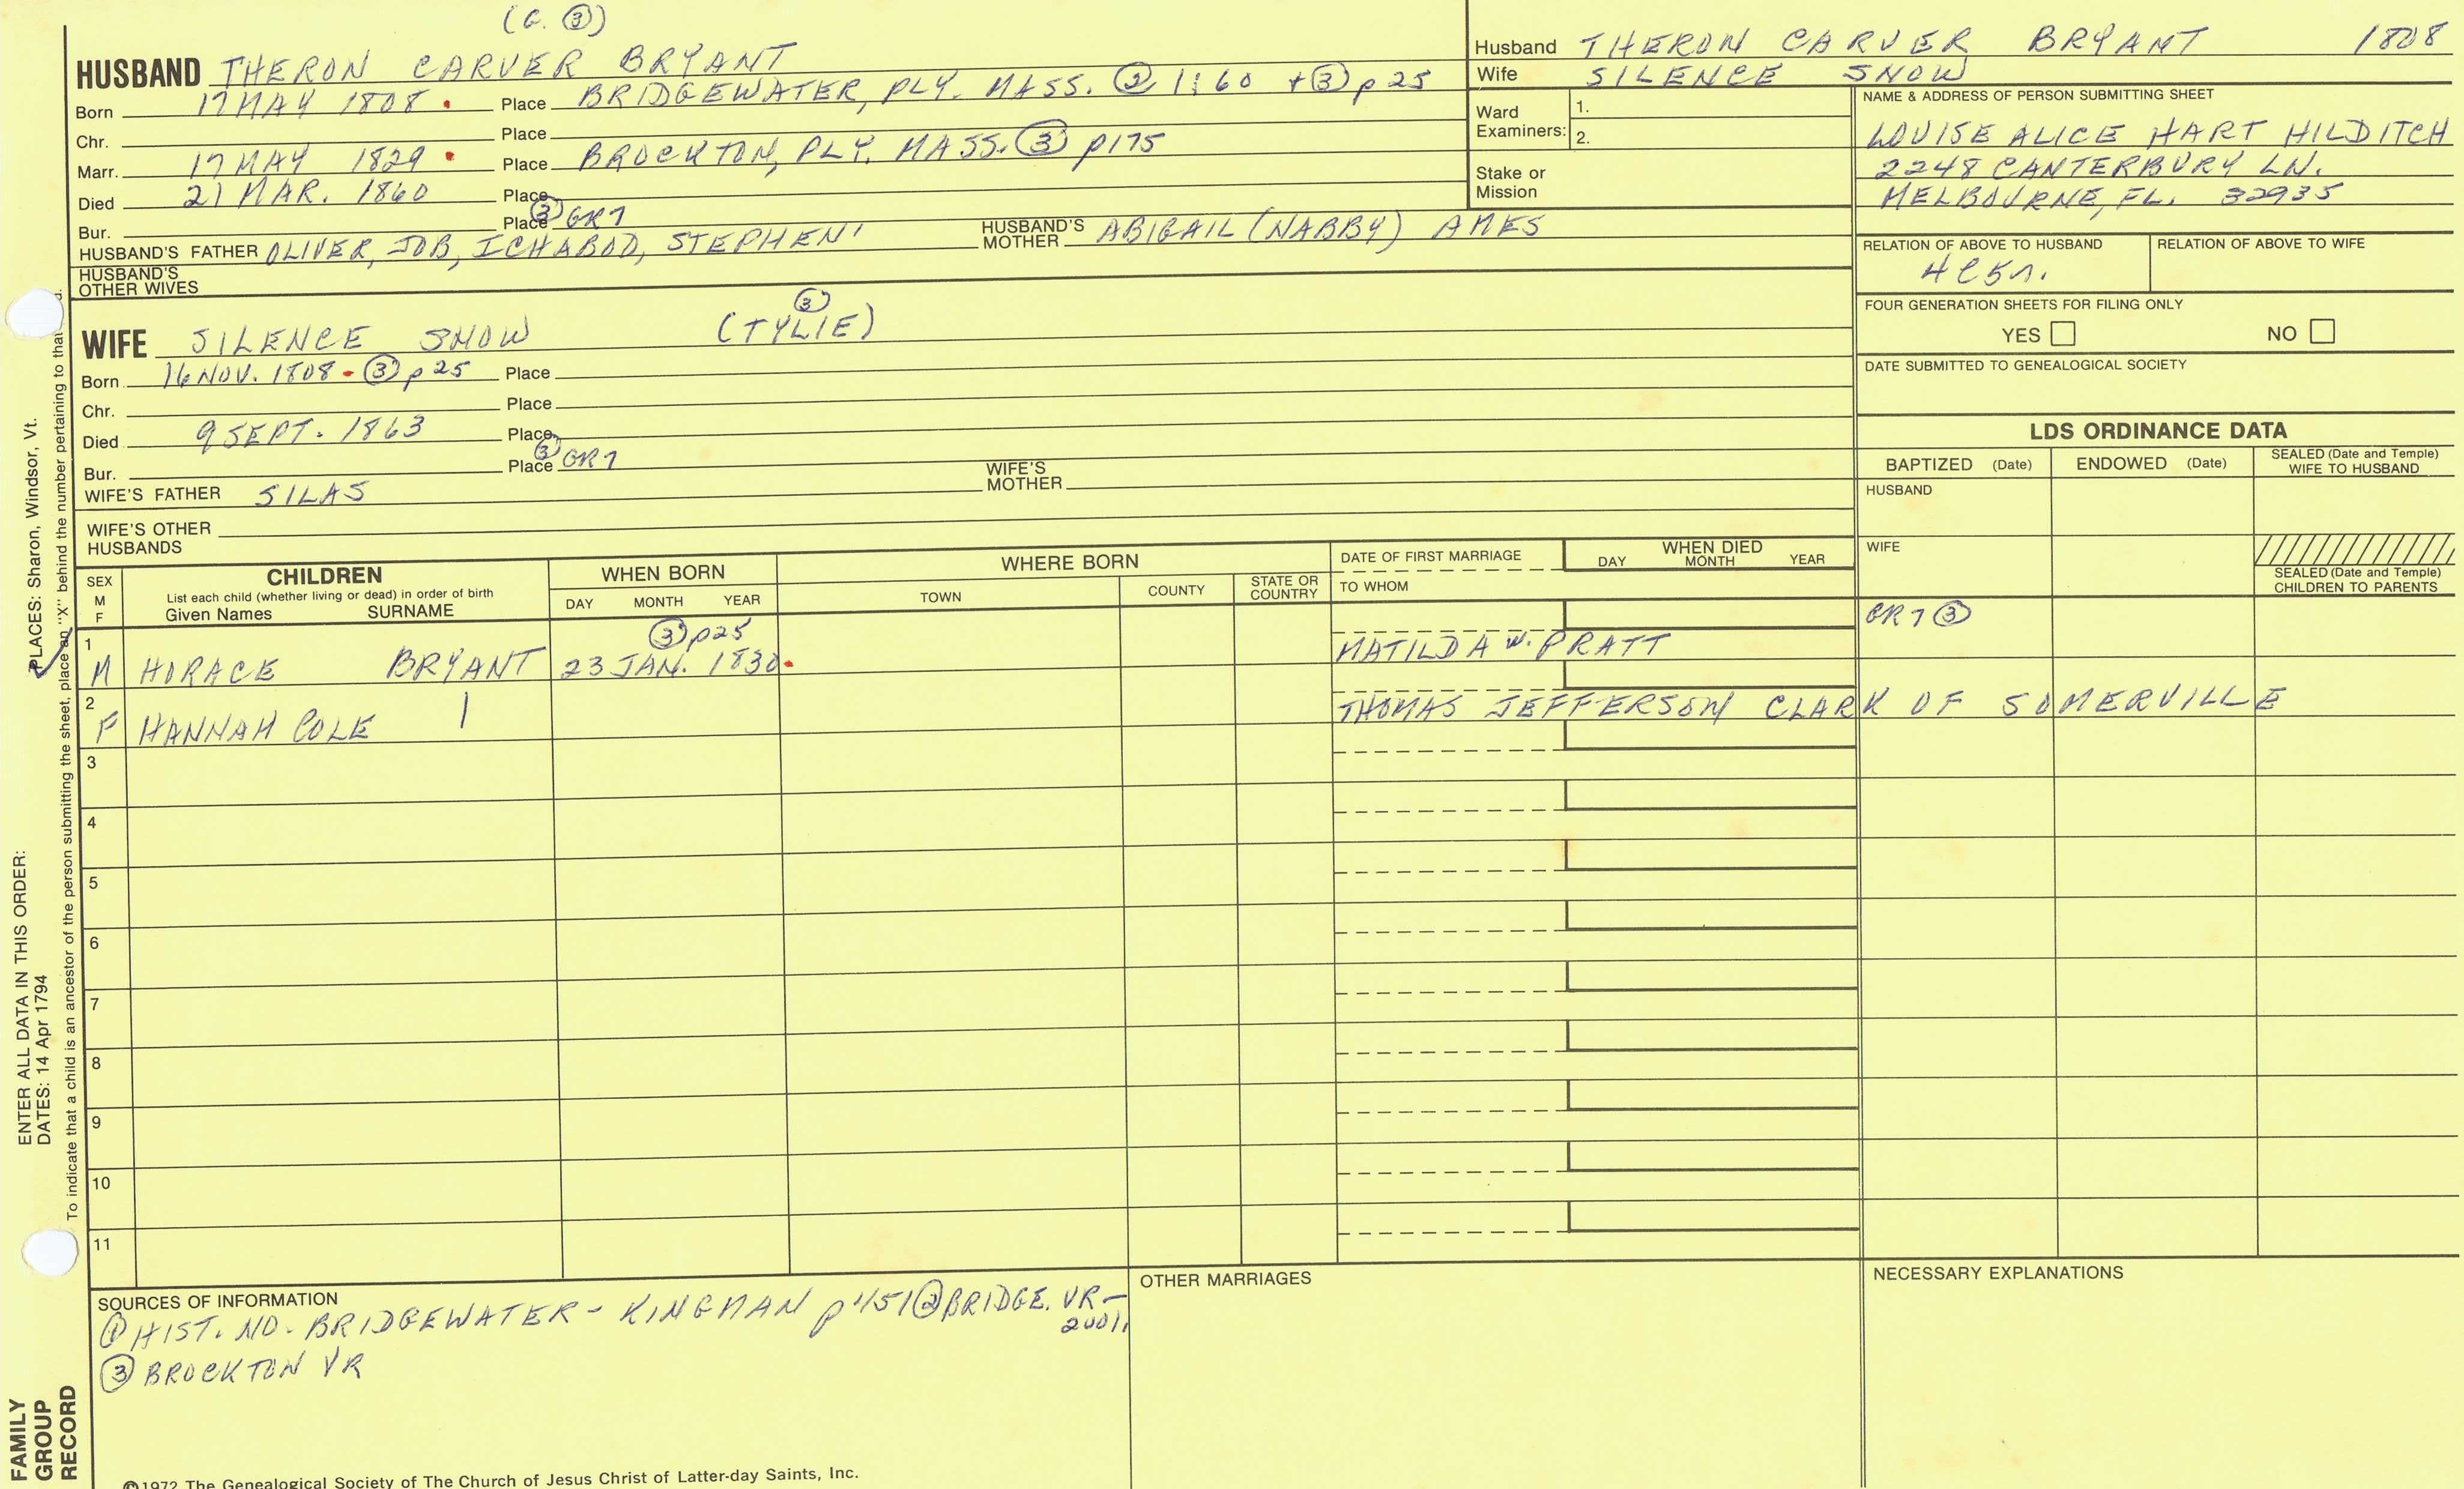 (G. ③)
HUSBAND THERON CARVER BRYANT
Born 17 MAY 1808 . Place BRIDGEWATER, PLY. MASS. ② 1:60 + ③ p 25
Chr. Place
Marr. 17 MAY 1829 . Place BROCKTON, PLY. MASS. ③ p175
Died 21 MAR. 1860 Place
Bur. Place ③ GR7
HUSBAND'S FATHER OLIVER, JOB, ICHABOD, STEPHEN' HUSBAND'S MOTHER ABIGAIL (NABBY) AMES
HUSBAND'S OTHER WIVES
Husband THERON CARVER BRYANT 1808
Wife SILENCE SNOW
Ward Examiners: 1.
2.
Stake or Mission
NAME & ADDRESS OF PERSON SUBMITTING SHEET
LOUISE ALICE HART HILDITCH
2248 CANTERBURY LN.
MELBOURNE, FL. 32935
RELATION OF ABOVE TO HUSBAND RELATION OF ABOVE TO WIFE
4C5r.
FOUR GENERATION SHEETS FOR FILING ONLY
YES NO
DATE SUBMITTED TO GENEALOGICAL SOCIETY
③
WIFE SILENCE SNOW (TYLIE)
Born 16 NOV. 1808 - ③ p 25 Place
Chr. Place
Died 9 SEPT. 1863 Place
Bur. Place ③ GR7
WIFE'S FATHER SILAS WIFE'S MOTHER
WIFE'S OTHER HUSBANDS
LDS ORDINANCE DATA
BAPTIZED (Date) ENDOWED (Date) SEALED (Date and Temple) WIFE TO HUSBAND
HUSBAND
WIFE
SEALED (Date and Temple) CHILDREN TO PARENTS
SEX M F CHILDREN WHEN BORN WHERE BORN DATE OF FIRST MARRIAGE WHEN DIED
List each child (whether living or dead) in order of birth
Given Names SURNAME DAY MONTH YEAR TOWN COUNTY STATE OR COUNTRY TO WHOM DAY MONTH YEAR
1 ③ p25 GR7 ③
M HORACE BRYANT 23 JAN. 1830. MATILDA W. PRATT
2
F HANNAH COLE | THOMAS JEFFERSON CLARK OF SOMERVILLE
3
4
5
6
7
8
9
10
11
SOURCES OF INFORMATION
① HIST. NO. BRIDGEWATER - KINGMAN p 451 ② BRIDGE. VR - 2vol.
③ BROCKTON VR
OTHER MARRIAGES
NECESSARY EXPLANATIONS
©1972 The Genealogical Society of The Church of Jesus Christ of Latter-day Saints, Inc.
ENTER ALL DATA IN THIS ORDER:
DATES: 14 Apr 1794
PLACES: Sharon, Windsor, Vt.
To indicate that a child is an ancestor of the person submitting the sheet, place an "X" behind the number pertaining to that
FAMILY
GROUP
RECORD